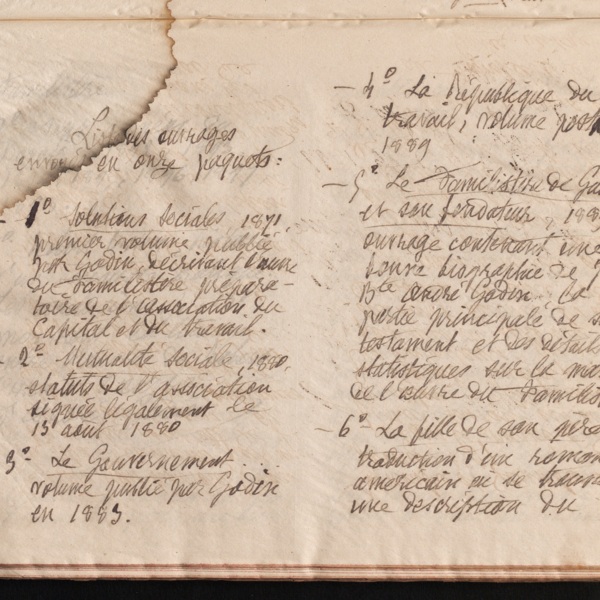 Liste des ouvrages
en onze paquets:
1º Solutions Sociales 1871,
premier volume publié
par Godin, décrivant l'œuvre
du Familistère prépara-
toire de l'association du
Capital et du travail.
2º Mutualité Sociale, 1880,
statuts de l'association
signée légalement le
13 août 1880
3º Le Gouvernement...
volume publié par Godin
en 1883.
- 4º La République du
travail, volume
1889
- 5º Le Familistère de
et son fondateur,
ouvrage contenant une
biographie de
Bte André Godin. La
partie principale de
testament et des détails
statistiques sur la
de l'œuvre du
- 6º La fille de son père
traduction d'un roman
américain où se
une description du